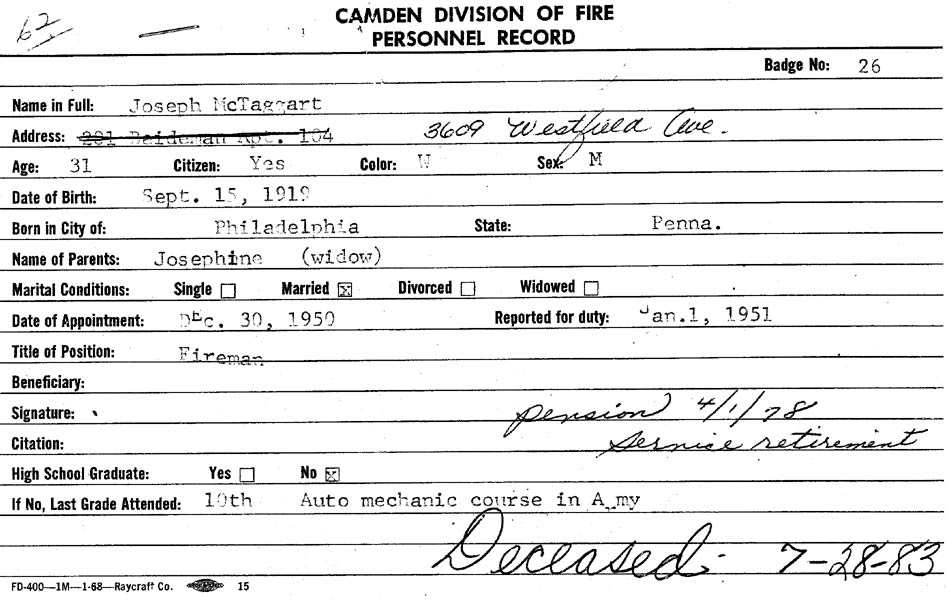 62
CAMDEN DIVISION OF FIRE
PERSONNEL RECORD
Badge No: 26
Name in Full: Joseph McTaggart
Address: 201 Beideman Apt. 104 3609 Westfield Ave.
Age: 31 Citizen: Yes Color: W Sex: M
Date of Birth: Sept. 15, 1919
Born in City of: Philadelphia State: Penna.
Name of Parents: Josephine (widow)
Marital Conditions: Single ☐ Married ☒ Divorced ☐ Widowed ☐
Date of Appointment: DEc. 30, 1950 Reported for duty: Jan.1, 1951
Title of Position: Fireman
Beneficiary:
Signature: pension 4/1/78
Citation: service retirement
High School Graduate: Yes ☐ No ☒
If No, Last Grade Attended: 10th Auto mechanic course in A my
Deceased - 7-28-83
FD-400—1M—1-68—Raycraft Co. 15